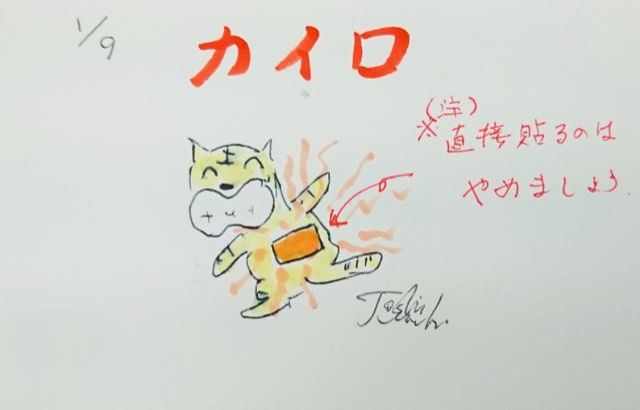 1/9
カイロ
(注)
※直接貼るのは
やめましょう.